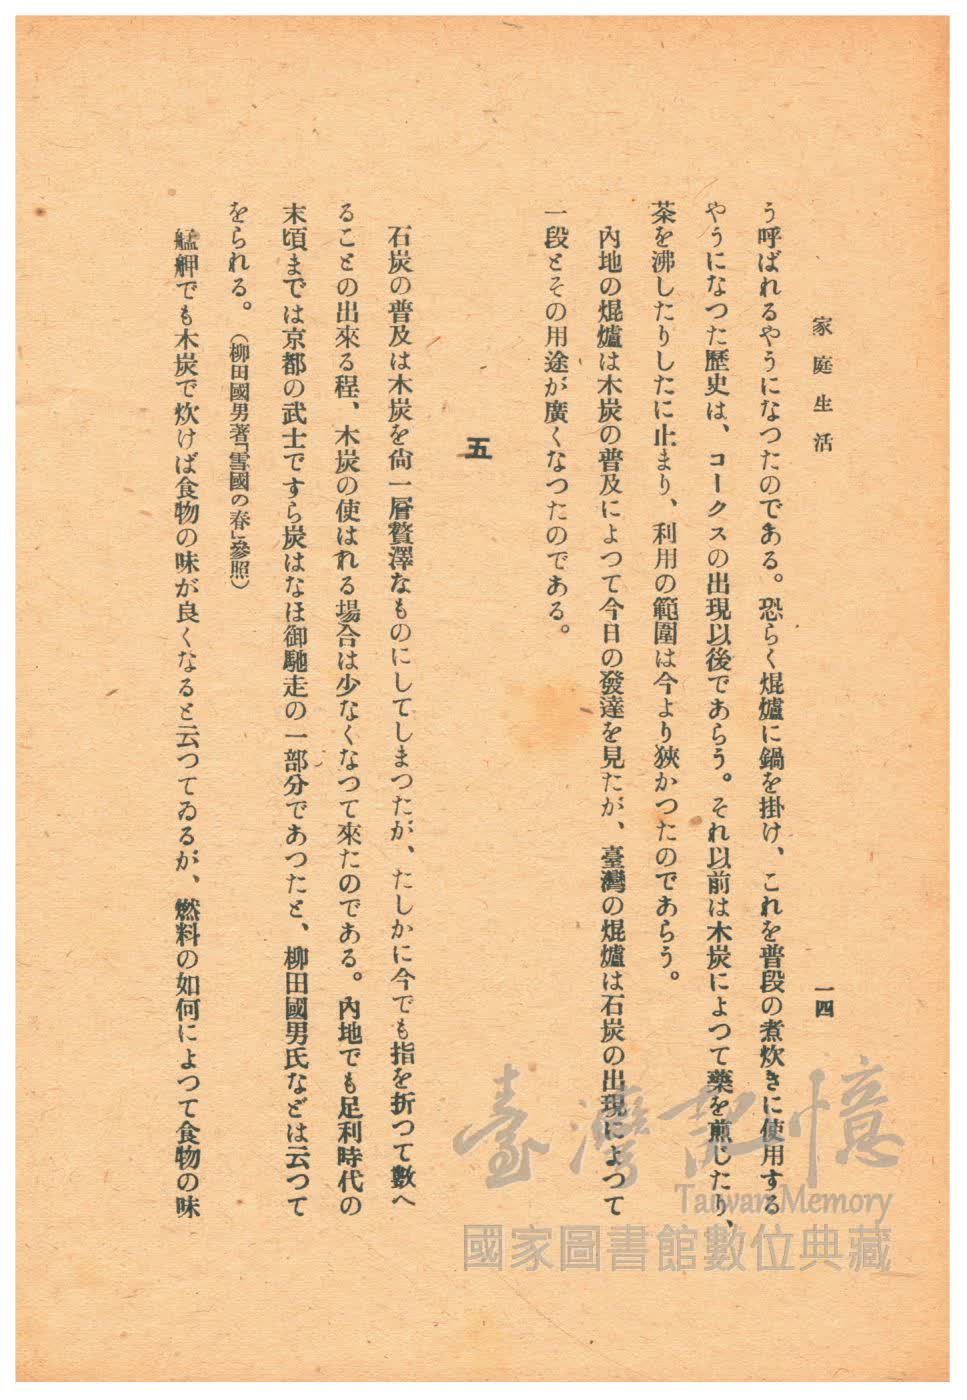 家庭生活
一四
う呼ばれるやうになつたのである。恐らく焜爐に鍋を掛け、これを普段の煮炊きに使用する
やうになつた歷史は、コークスの出現以後であらう。それ以前は木炭によつて藥を煎じたり、
茶を沸したりしたに止まり、利用の範圍は今より狹かつたのであらう。
內地の焜爐は木炭の普及によつて今日の發達を見たが、臺灣の焜爐は石炭の出現によつて
一段とその用途が廣くなつたのである。
五
石炭の普及は木炭を尙一層贅澤なものにしてしまつたが、たしかに今でも指を折つて數へ
ることの出來る程、木炭の使はれる場合は少なくなつて來たのである。內地でも足利時代の
末頃までは京都の武士ですら炭はなほ御馳走の一部分であつたと、柳田國男氏などは云つて
をられる。（柳田國男著「雪國の春」參照）
艋舺でも木炭で炊けば食物の味が良くなると云つてゐるが、燃料の如何によつて食物の味
臺灣記憶
Taiwan Memory
國家圖書館數位典藏